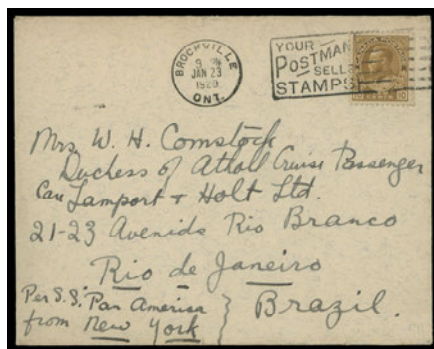 BROCKVILLE
JAN 23
ONT.
YOUR
POSTMAN
SELLS
STAMPS
Mrs W. H. Comstock
Duchess of Atholl Cruise Passenger
Care Lamport + Holt Ltd.
21-23 Avenida Rio Branco
Rio de Janeiro
Brazil.
Per S.S. Pan America
from New York